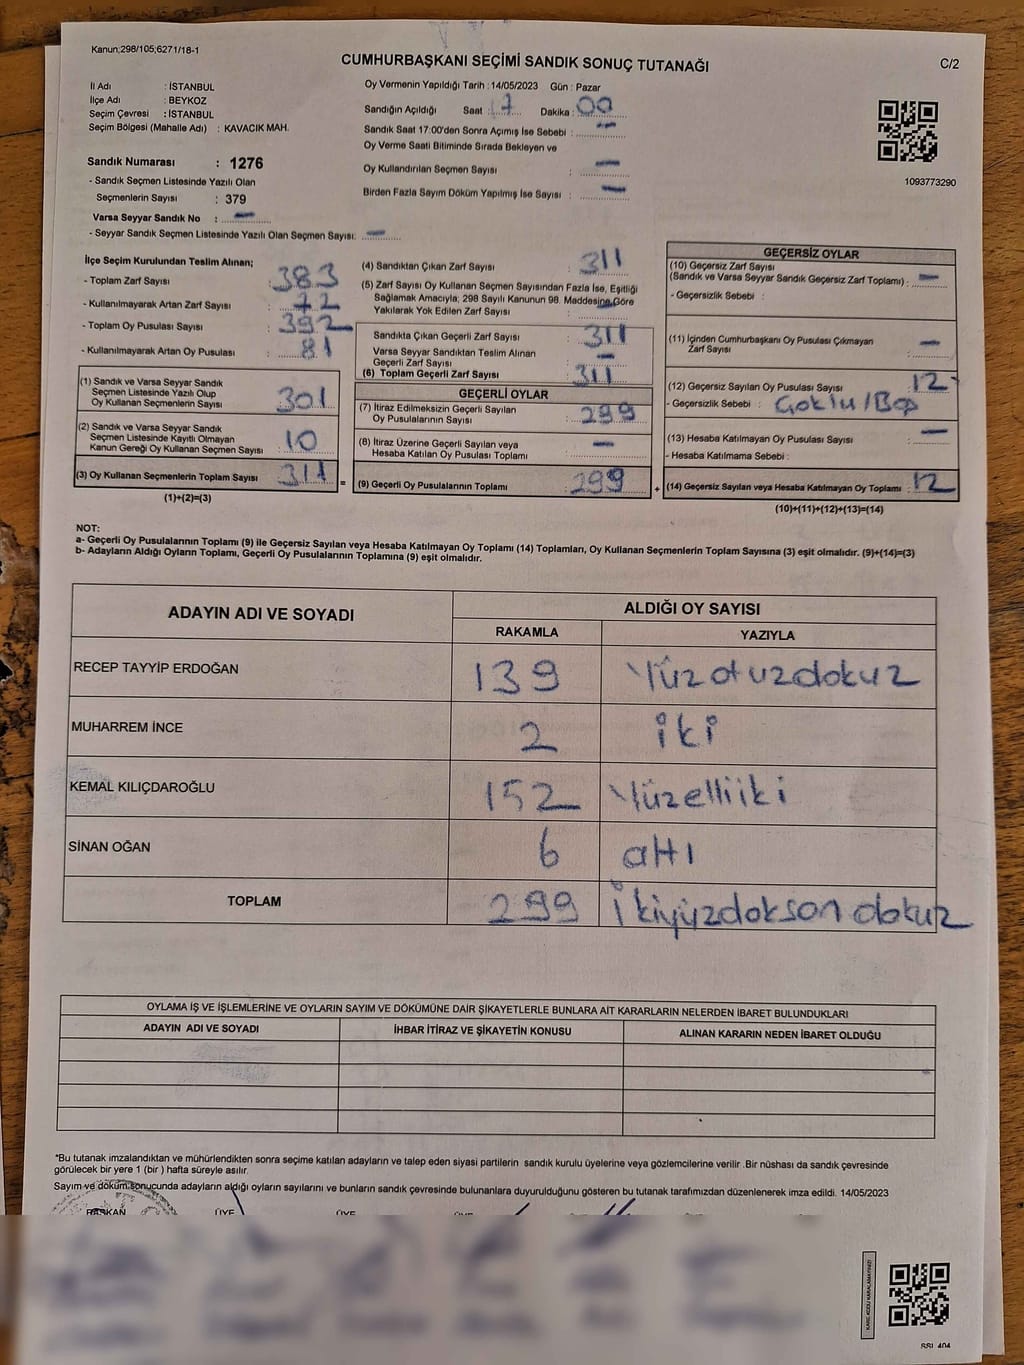 Kanun;298/105;6271/18-1
CUMHURBAŞKANI SEÇİMİ SANDIK SONUÇ TUTANAĞI
C/2
İl Adı : İSTANBUL
İlçe Adı : BEYKOZ
Seçim Çevresi : İSTANBUL
Seçim Bölgesi (Mahalle Adı) : KAVACIK MAH.
Oy Vermenin Yapıldığı Tarih : 14/05/2023 Gün : Pazar
Sandığın Açıldığı Saat : 17 Dakika : 00
Sandık Saat 17:00'den Sonra Açımış İse Sebebi : —
Oy Verme Saati Bitiminde Sırada Bekleyen ve
Oy Kullandırılan Seçmen Sayısı : —
Birden Fazla Sayım Döküm Yapılmış İse Sayısı : —
1093773290
Sandık Numarası : 1276
- Sandık Seçmen Listesinde Yazılı Olan
Seçmenlerin Sayısı : 379
Varsa Seyyar Sandık No : —
- Seyyar Sandık Seçmen Listesinde Yazılı Olan Seçmen Sayısı: —
İlçe Seçim Kurulundan Teslim Alınan;
- Toplam Zarf Sayısı : 383
- Kullanılmayarak Artan Zarf Sayısı : 72
- Toplam Oy Pusulası Sayısı : 392
- Kullanılmayarak Artan Oy Pusulası : 81
(1) Sandık ve Varsa Seyyar Sandık
Seçmen Listesinde Yazılı Olup
Oy Kullanan Seçmenlerin Sayısı : 301
(2) Sandık ve Varsa Seyyar Sandık
Seçmen Listesinde Kayıtlı Olmayan
Kanun Gereği Oy Kullanan Seçmen Sayısı : 10
(3) Oy Kullanan Seçmenlerin Toplam Sayısı : 311
(1)+(2)=(3)
(4) Sandıktan Çıkan Zarf Sayısı : 311
(5) Zarf Sayısı Oy Kullanan Seçmen Sayısından Fazla İse, Eşitliği
Sağlamak Amacıyla; 298 Sayılı Kanunun 98. Maddesine Göre
Yakılarak Yok Edilen Zarf Sayısı : —
Sandıkta Çıkan Geçerli Zarf Sayısı : 311
Varsa Seyyar Sandıktan Teslim Alınan
Geçerli Zarf Sayısı : —
(6) Toplam Geçerli Zarf Sayısı : 311
GEÇERLİ OYLAR
(7) İtiraz Edilmeksizin Geçerli Sayılan
Oy Pusulasının Sayısı : 299
(8) İtiraz Üzerine Geçerli Sayılan veya
Hesaba Katılan Oy Pusulası Toplamı : —
= (9) Geçerli Oy Pusulalarının Toplamı : 299 +
GEÇERSİZ OYLAR
(10) Geçersiz Zarf Sayısı
(Sandık ve Varsa Seyyar Sandık Geçersiz Zarf Toplamı) : —
- Geçersizlik Sebebi :
(11) İçinden Cumhurbaşkanı Oy Pusulası Çıkmayan
Zarf Sayısı : —
(12) Geçersiz Sayılan Oy Pusulası Sayısı : 12
- Geçersizlik Sebebi : Çoklu/Boş
(13) Hesaba Katılmayan Oy Pusulası Sayısı : —
- Hesaba Katılmama Sebebi :
(14) Geçersiz Sayılan veya Hesaba Katılmayan Oy Toplamı : 12
(10)+(11)+(12)+(13)=(14)
NOT:
a- Geçerli Oy Pusulalarının Toplamı (9) ile Geçersiz Sayılan veya Hesaba Katılmayan Oy Toplamı (14) Toplamları, Oy Kullanan Seçmenlerin Toplam Sayısına (3) eşit olmalıdır. (9)+(14)=(3)
b- Adayların Aldığı Oyların Toplamı, Geçerli Oy Pusulalarının Toplamına (9) eşit olmalıdır.
ADAYIN ADI VE SOYADI
ALDIĞI OY SAYISI
RAKAMLA YAZIYLA
RECEP TAYYİP ERDOĞAN 139 Yüzotuzdokuz
MUHARREM İNCE 2 iki
KEMAL KILIÇDAROĞLU 152 Yüzelliiki
SİNAN OĞAN 6 altı
TOPLAM 299 İkiyüzdoksan dokuz
OYLAMA İŞ VE İŞLEMLERİNE VE OYLARIN SAYIM VE DÖKÜMÜNE DAİR ŞİKAYETLERLE BUNLARA AİT KARARLARIN NELERDEN İBARET BULUNDUKLARI
ADAYIN ADI VE SOYADI İHBAR İTİRAZ VE ŞİKAYETİN KONUSU ALINAN KARARIN NEDEN İBARET OLDUĞU
*Bu tutanak imzalandıktan ve mühürlendikten sonra seçime katılan adayların ve talep eden siyasi partilerin sandık kurulu üyelerine veya gözlemcilerine verilir .Bir nüshası da sandık çevresinde
görülecek bir yere 1 (bir ) hafta süreyle asılır.
Sayım ve döküm sonucunda adayların aldığı oyların sayılarını ve bunların sandık çevresinde bulunanlara duyurulduğunu gösteren bu tutanak tarafımızdan düzenlenerek imza edildi. 14/05/2023
BAŞKAN ÜYE ÜYE ÜYE
KARE KODU KARALAMAYINIZ!